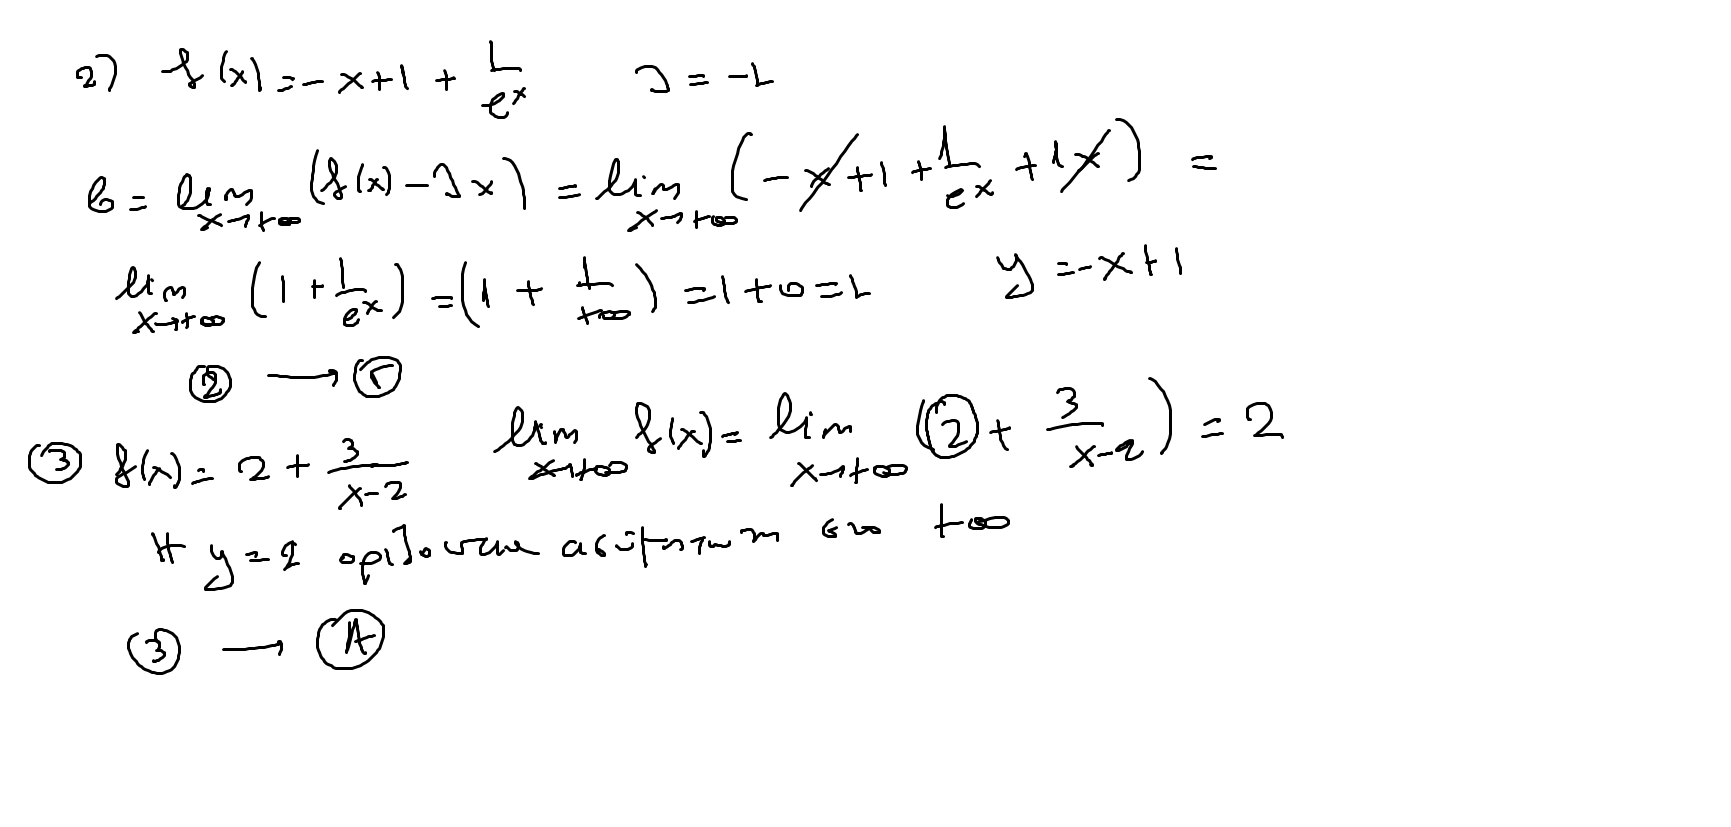 2) f(x) = -x+1 + 1/e^x λ = -1
β = lim x→+∞ (f(x) - λx) = lim x→+∞ (-x+1 + 1/e^x + 1x) =
lim x→+∞ (1 + 1/e^x) = (1 + 1/+∞) = 1+0 = 1 y = -x+1
② → Γ
③ f(x) = 2 + 3/(x-2) lim x→+∞ f(x) = lim x→+∞ (2 + 3/(x-2)) = 2
Η y = 2 οριζοντια ασυμπτωτη στο +∞
③ → Α